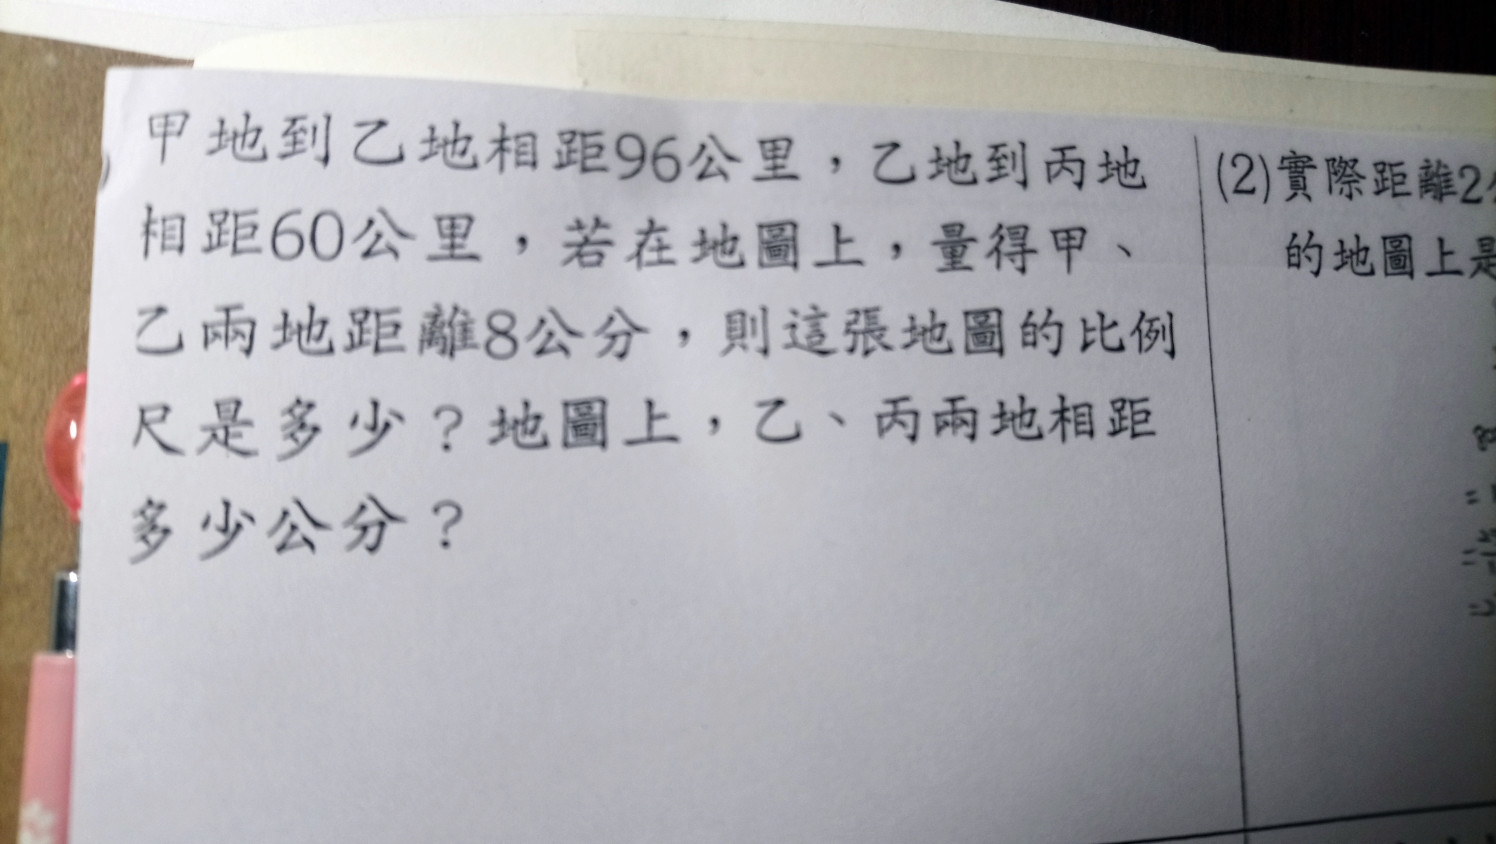 甲地到乙地相距96公里，乙地到丙地
相距60公里，若在地圖上，量得甲、
乙兩地距離8公分，則這張地圖的比例
尺是多少？地圖上，乙、丙兩地相距
多少公分？
(2)實際距離2
的地圖上是